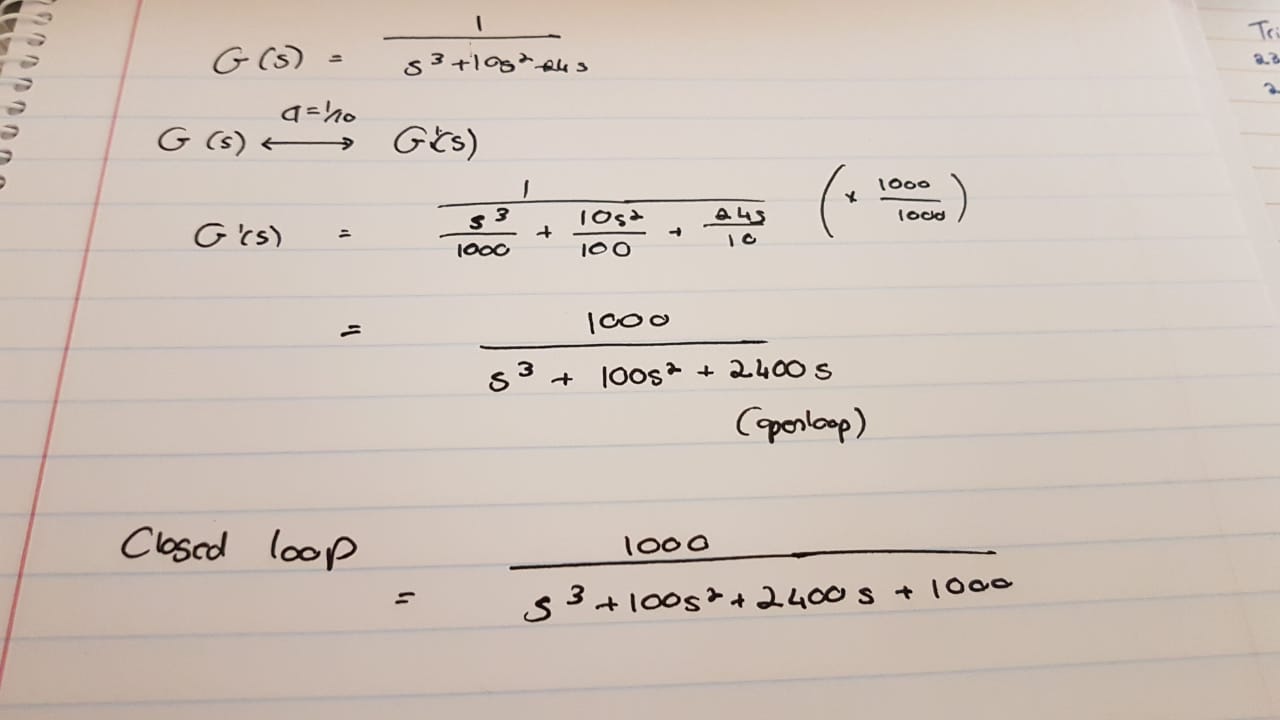 G(s) = 1 / s³ + 10s² + 24s
G(s) ⟷ G'(s) a=1/10
G'(s) = 1 / s³/1000 + 10s²/100 + 24s/10 (× 1000/1000)
= 1000 / s³ + 100s² + 2400s
(openloop)
Closed loop
= 1000 / s³ + 100s² + 2400s + 1000